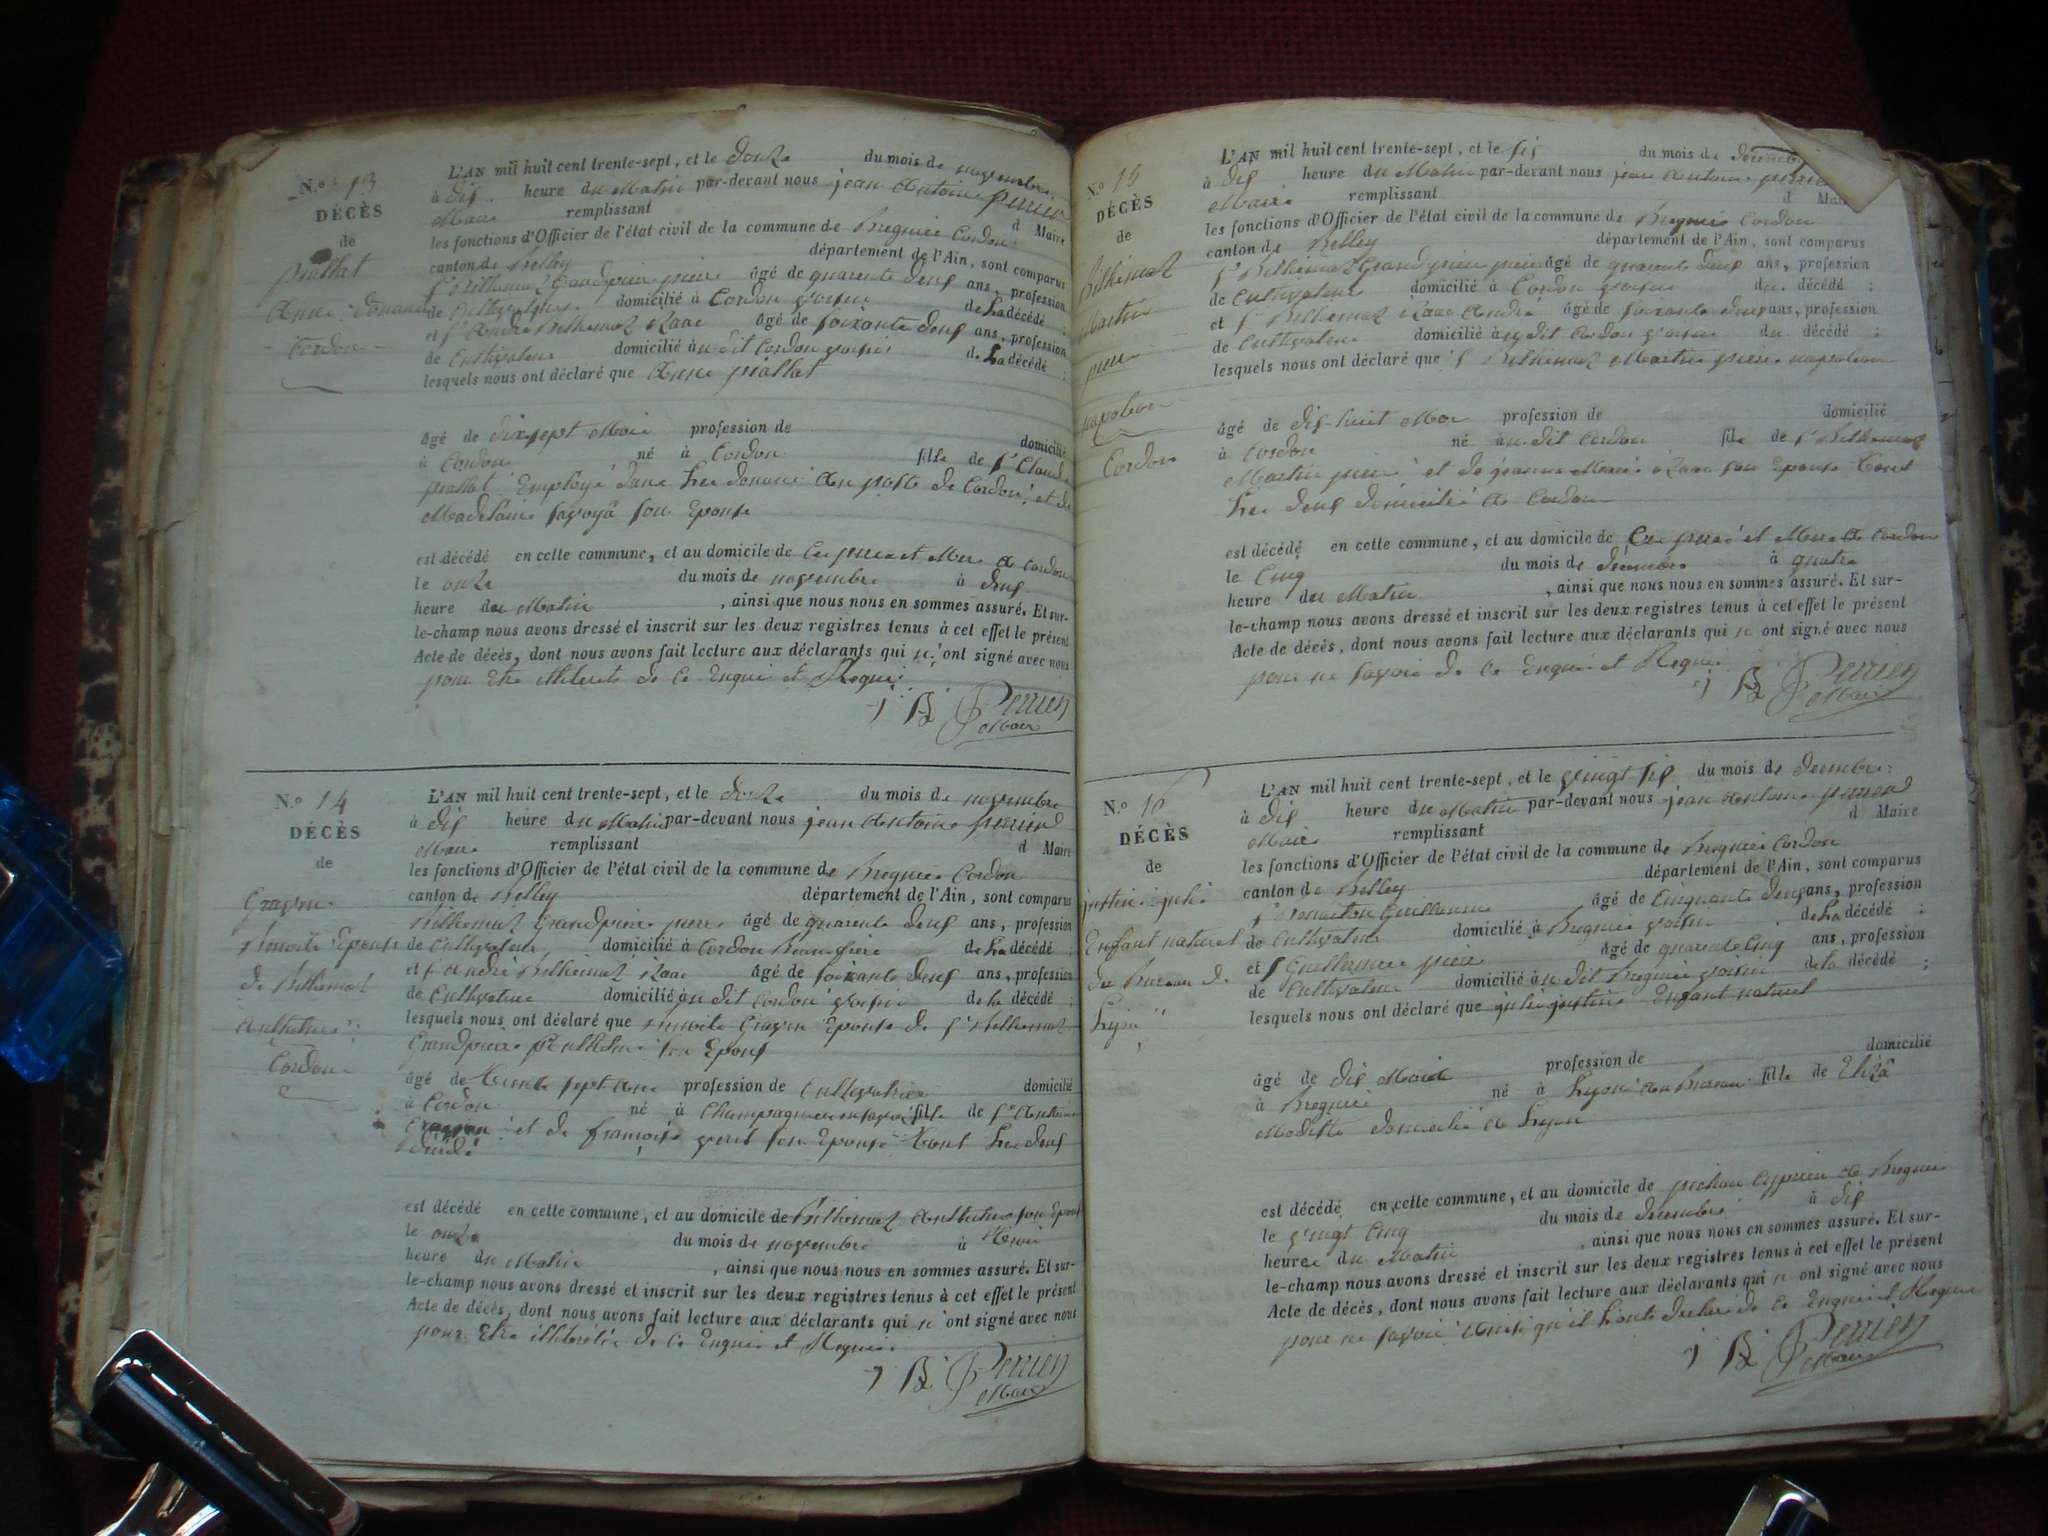 N.° 13
DÉCÈS
de
piallat
Anne
Cordon
L'AN mil huit cent trente-sept, et le douze du mois de novembre
à dix heure du Matin par-devant nous jean Antoine perrier
Maire remplissant d Maire
les fonctions d'Officier de l'état civil de la commune de Bregnier Cordon
canton de Belley département de l'Ain, sont comparus
Billiemaz Grandpierre pierre âgé de quarante deux ans, profession
de Cultivateur domicilié à Cordon voisin de La décédé ;
et Sr André Billiemaz izaac âgé de soixante deux ans, profession
de Cultivateur domicilié à u dit Cordon voisin de La décédé ;
lesquels nous ont déclaré que Anne piallat
âgé de dix sept Mois profession de domicilié
à Cordon né à Cordon fille de Sr Claude
piallat Employé dans Les douanes au poste de Cordon et de
Madelaine savoyà son Epouse
est décédé en cette commune, et au domicile de Ces père et Mère à Cordon
le onze du mois de novembre à deux
heure du Matin , ainsi que nous nous en sommes assuré. Et sur-
le-champ nous avons dressé et inscrit sur les deux registres tenus à cet effet le présent
Acte de décès, dont nous avons fait lecture aux déclarants qui n' ont signé avec nous
pour Etre illiterés de Ce Enquis et Requis
Perrier
Maire
N.° 14
DÉCÈS
de
Gravon
Benoite Epouse
de Billiemaz
Cordon
L'AN mil huit cent trente-sept, et le douze du mois de novembre
à dix heure du Matin par-devant nous jean Antoine perrier
Maire remplissant d Maire
les fonctions d'Officier de l'état civil de la commune de Bregnier Cordon
canton de Belley département de l'Ain, sont comparus
Billiemaz Grandpierre pierre âgé de quarante deux ans, profession
de Cultivateur domicilié à Cordon de La décédé ;
et Sr André Billiemaz izaac âgé de soixante deux ans, profession
de Cultivateur domicilié à u dit Cordon voisin de la décédé ;
lesquels nous ont déclaré que Benoite Gravon Epouse de Sr Billiemaz
Grandpierre son Epoux
âgé de trente sept ans profession de Cultivatrice domicilié
à Cordon né à Champagneux en savoie fille de Sr Antoine
et de françoise son Epouse tout Les deux
décédé
est décédé en cette commune, et au domicile de Billiemaz son Epoux
le onze du mois de novembre à trois
heure du Matin , ainsi que nous nous en sommes assuré. Et sur-
le-champ nous avons dressé et inscrit sur les deux registres tenus à cet effet le présent
Acte de décès, dont nous avons fait lecture aux déclarants qui n' ont signé avec nous
pour Etre illiterés de Ce Enquis et Requis
Perrier
Maire
N.° 15
DÉCÈS
de
Billiemaz
Martin
pierre
napoleon
Cordon
L'AN mil huit cent trente-sept, et le six du mois de décembre
à dix heure du Matin par-devant nous jean Antoine perrier
Maire remplissant d Maire
les fonctions d'Officier de l'état civil de la commune de Bregnier Cordon
canton de Belley département de l'Ain, sont comparus
Sr Billiemaz Grandpierre pierre âgé de quarante deux ans, profession
de Cultivateur domicilié à Cordon voisin du décédé ;
et Sr Billiemaz izaac André âgé de soixante deux ans, profession
de Cultivateur domicilié à u dit Cordon voisin du décédé ;
lesquels nous ont déclaré que Sr Billiemaz Martin pierre napoleon
âgé de dix-huit Mois profession de domicilié
à Cordon né à u dit Cordon fils de Sr Billiemaz
Martin pierre et de jeanne Marie izaac son Epouse tout
Les deux domicilié à Cordon
est décédé en cette commune, et au domicile de Ces père et Mère à Cordon
le Cinq du mois de décembre à quatre
heure du Matin , ainsi que nous nous en sommes assuré. Et sur-
le-champ nous avons dressé et inscrit sur les deux registres tenus à cet effet le présent
Acte de décès, dont nous avons fait lecture aux déclarants qui n ont signé avec nous
pour ne savoir de Ce Enquis et Requis
Perrier
Maire
N.° 16
DÉCÈS
de
justine julie
Enfant naturel
du Bureau de
Lyon
L'AN mil huit cent trente-sept, et le vingt six du mois de decembre
à dix heure du Matin par-devant nous jean Antoine perrier
Maire remplissant d Maire
les fonctions d'Officier de l'état civil de la commune de Bregnier Cordon
canton de Belley département de l'Ain, sont comparus
Guillaume âgé de Cinquante deux ans, profession
de Cultivateur domicilié à Bregnier voisin de La décédé ;
et Sr Guillermier pierre âgé de quarante Cinq ans, profession
de Cultivateur domicilié à u dit Bregnier voisin de la décédé ;
lesquels nous ont déclaré que julie justine Enfant naturel
âgé de dix Mois profession de domicilié
à Bregnier né à Lyon au Bureau fille de Eliza
Modeste domicilié à Lyon
est décédé en cette commune, et au domicile de à Bregnier
le vingt Cinq du mois de décembre à dix
heure du Matin , ainsi que nous nous en sommes assuré. Et sur-
le-champ nous avons dressé et inscrit sur les deux registres tenus à cet effet le présent
Acte de décès, dont nous avons fait lecture aux déclarants qui n ont signé avec nous
pour ne savoir ainsi qu'il L'ont declaré de Ce Enquis et Requis
Perrier
Maire